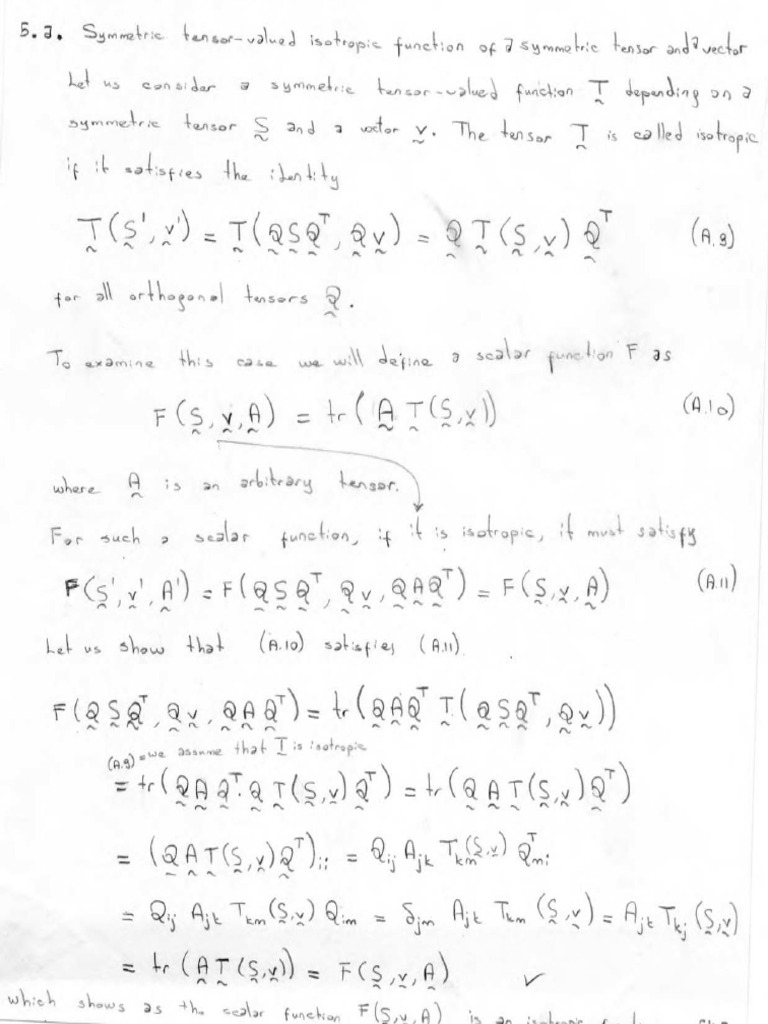 5.a. Symmetric tensor-valued isotropic function of a symmetric tensor and a vector
Let us consider a symmetric tensor-valued function T̰ depending on a
symmetric tensor S̰ and a vector v̰. The tensor T̰ is called isotropic
if it satisfies the identity
T̰(S̰', v̰') = T̰(Q̰S̰Q̰ᵀ, Q̰v̰) = Q̰ T̰(S̰,v̰) Q̰ᵀ (A.9)
for all orthogonal tensors Q̰.
To examine this case we will define a scalar function F as
F(S̰,v̰,A̰) = tr(A̰ T̰(S̰,v̰)) (A.10)
where A̰ is an arbitrary tensor.
For such a scalar function, if it is isotropic, it must satisfy
F(S̰',v̰',A̰') = F(Q̰S̰Q̰ᵀ, Q̰v̰, Q̰A̰Q̰ᵀ) = F(S̰,v̰,A̰) (A.11)
Let us show that (A.10) satisfies (A.11).
F(Q̰S̰Q̰ᵀ, Q̰v̰, Q̰A̰Q̰ᵀ) = tr(Q̰A̰Q̰ᵀ T̰(Q̰S̰Q̰ᵀ, Q̰v̰))
(A.9) = we assume that T̰ is isotropic
= tr(Q̰A̰Q̰ᵀ·Q̰T̰(S̰,v̰)Q̰ᵀ) = tr(Q̰A̰T̰(S̰,v̰)Q̰ᵀ)
= (Q̰A̰T̰(S̰,v̰)Q̰ᵀ)ᵢᵢ = Qᵢⱼ Aⱼₖ Tₖₘ(S̰,v̰) Qᵀₘᵢ
= Qᵢⱼ Aⱼₖ Tₖₘ(S̰,v̰) Qᵢₘ = δⱼₘ Aⱼₖ Tₖₘ(S̰,v̰) = Aⱼₖ Tₖⱼ(S̰,v̰)
= tr(A̰T̰(S̰,v̰)) = F(S̰,v̰,A̰) ✓
which shows as the scalar function F(S̰,v̰,A̰) is an isotropic